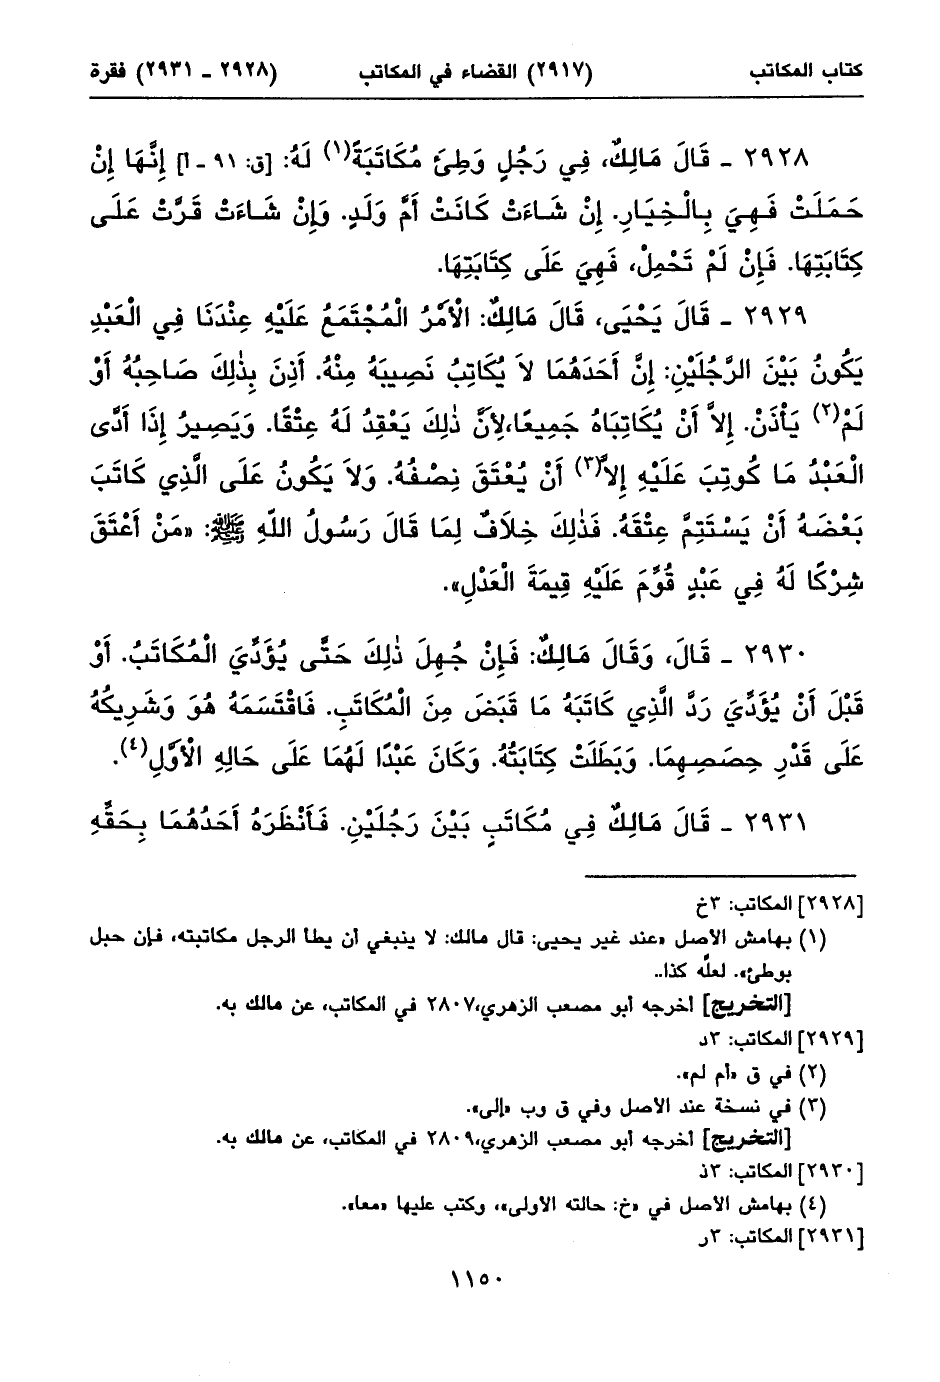 كتاب المكاتب (٢٩١٧) القضاء في المكاتب (٢٩٢٨ ـ ٢٩٣١) فقرة
٢٩٢٨ ـ قَالَ مَالِكٌ، فِي رَجُلٍ وَطِئَ مُكَاتَبَةً(١) لَهُ: [ق: ٩١ ـ أ] إِنَّهَا إِنْ
حَمَلَتْ فَهِيَ بِالْخِيَارِ. إِنْ شَاءَتْ كَانَتْ أُمَّ وَلَدٍ. وَإِنْ شَاءَتْ قَرَّتْ عَلَى
كِتَابَتِهَا. فَإِنْ لَمْ تَحْمِلْ، فَهِيَ عَلَى كِتَابَتِهَا.
٢٩٢٩ ـ قَالَ يَحْيَى، قَالَ مَالِكٌ: الْأَمْرُ الْمُجْتَمَعُ عَلَيْهِ عِنْدَنَا فِي الْعَبْدِ
يَكُونُ بَيْنَ الرَّجُلَيْنِ: إِنَّ أَحَدَهُمَا لاَ يُكَاتِبُ نَصِيبَهُ مِنْهُ. أَذِنَ بِذٰلِكَ صَاحِبُهُ أَوْ
لَمْ(٢) يَأْذَنْ. إِلاَّ أَنْ يُكَاتِبَاهُ جَمِيعًا،لِأَنَّ ذٰلِكَ يَعْقِدُ لَهُ عِتْقًا. وَيَصِيرُ إِذَا أَدَّى
الْعَبْدُ مَا كُوتِبَ عَلَيْهِ إِلاَّ(٣) أَنْ يُعْتَقَ نِصْفُهُ. وَلاَ يَكُونُ عَلَى الَّذِي كَاتَبَ
بَعْضَهُ أَنْ يَسْتَتِمَّ عِتْقَهُ. فَذٰلِكَ خِلَافٌ لِمَا قَالَ رَسُولُ اللّهِ ﷺ: «مَنْ أَعْتَقَ
شِرْكًا لَهُ فِي عَبْدٍ قُوِّمَ عَلَيْهِ قِيمَةَ الْعَدْلِ».
٢٩٣٠ ـ قَالَ، وَقَالَ مَالِكٌ: فَإِنْ جُهِلَ ذٰلِكَ حَتَّى يُؤَدِّيَ الْمُكَاتَبُ. أَوْ
قَبْلَ أَنْ يُؤَدِّيَ رَدَّ الَّذِي كَاتَبَهُ مَا قَبَضَ مِنَ الْمُكَاتَبِ. فَاقْتَسَمَهُ هُوَ وَشَرِيكُهُ
عَلَى قَدْرِ حِصَصِهِمَا. وَبَطَلَتْ كِتَابَتُهُ. وَكَانَ عَبْدًا لَهُمَا عَلَى حَالِهِ الْأَوَّلِ(٤).
٢٩٣١ ـ قَالَ مَالِكٌ فِي مُكَاتَبٍ بَيْنَ رَجُلَيْنِ. فَأَنْظَرَهُ أَحَدُهُمَا بِحَقِّهِ
[٢٩٢٨] المكاتب: ٣خ
(١) بهامش الأصل «عند غير يحيى: قال مالك: لا ينبغي أن يطأ الرجل مكاتبته، فإن حبل
بوطئ». لعلَّه كذا..
[التخريج] أخرجه أبو مصعب الزهري،٢٨٠٧ في المكاتب، عن مالك به.
[٢٩٢٩] المكاتب: ٣د
(٢) في ق «أم لم».
(٣) في نسخة عند الأصل وفي ق وب «إلى».
[التخريج] أخرجه أبو مصعب الزهري،٢٨٠٩ في المكاتب، عن مالك به.
[٢٩٣٠] المكاتب: ٣ذ
(٤) بهامش الأصل في «خ: حالته الأولى»، وكتب عليها «معا».
[٢٩٣١] المكاتب: ٣ر
١١٥٠